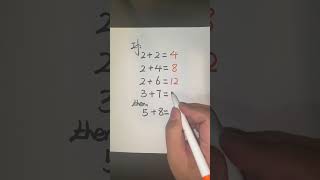 If:
2+2=4
2+4=8
2+6=12
3+7=
then,
5+8=